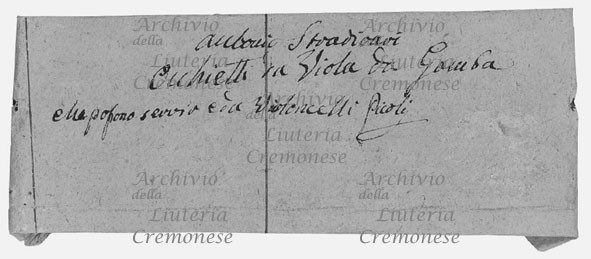 Archivio della Liuteria Cremonese
Archivio della Liuteria Cremonese
Antonio Stradivari
Archetti da Viola da Gamba
che posono servir e da Violoncelli Picoli
Archivio della Liuteria Cremonese
Archivio della Liuteria Cremonese